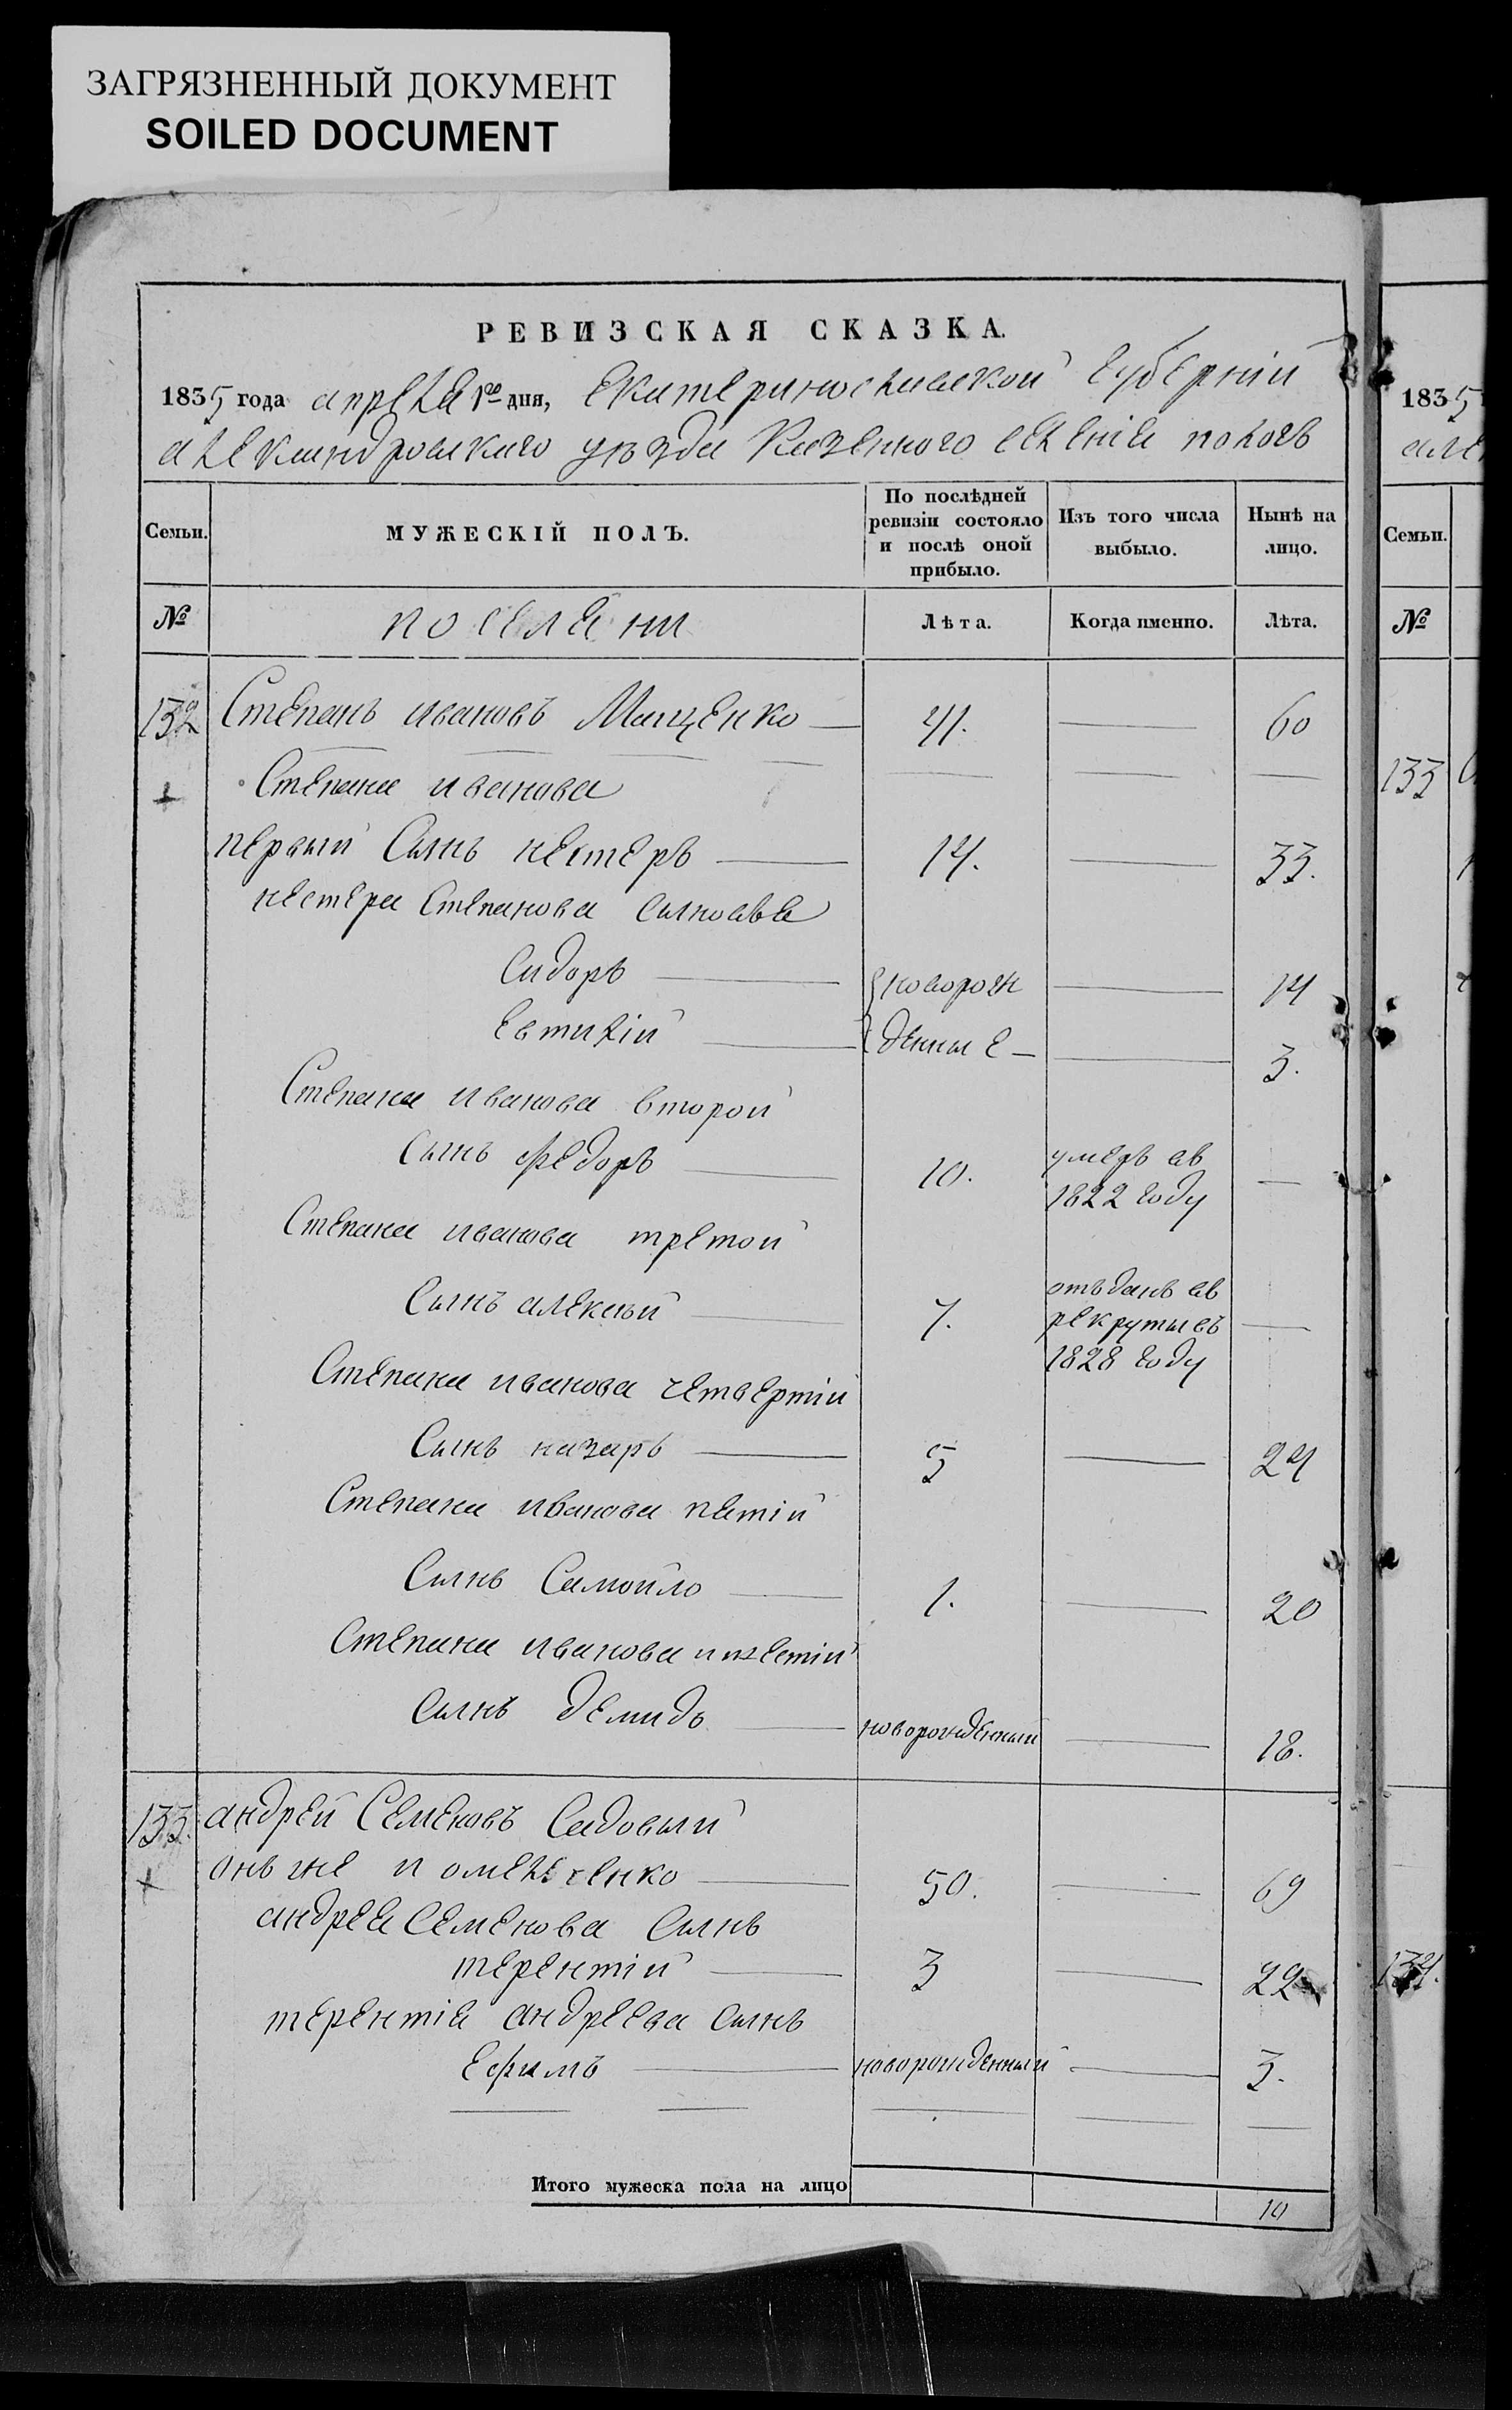 ЗАГРЯЗНЕННЫЙ ДОКУМЕНТ
SOILED DOCUMENT
РЕВИЗСКАЯ СКАЗКА.
1835 года апреля 1го дня, Екатеринославской Губернии
александровскаго уезда Казенного селения пологъ
Семьи. МУЖЕСКІЙ ПОЛЪ. По послѣдней ревизіи состояло и послѣ оной прибыло. Изъ того числа выбыло. Нынѣ на лицо.
№ поселяни Лѣта. Когда именно. Лѣта.
132 Степанъ ивановъ Мащенко — 41. — 60
+ Степана иванова
первый Сынъ нестеръ — 14. — 33.
нестера Степанова сыновья
Сидоръ — новорож — 14
Евтихій — денные — 3.
Степана иванова второй
Сынъ федоръ — 10. умеръ въ 1822 году —
Степана иванова третой
Сынъ алексѣй — 7. отъданъ въ рекруты въ 1828 году —
Степана иванова четвертій
Сынъ назаръ — 5 — 24
Степана иванова пятій
Сынъ Самойло — 1. — 20
Степана иванова шестій
Сынъ демидъ — новорожденный — 18.
133. андрей Семеновъ Садовый
+ онъ же и омельченко — 50. — 69
андрея Семенова Сынъ
терентій — 3 — 22
терентія андреева сынъ
Ефимъ — новорожденный — 3.
Итого мужеска пола на лицо 10
1835
Семьи.
№
133
134.